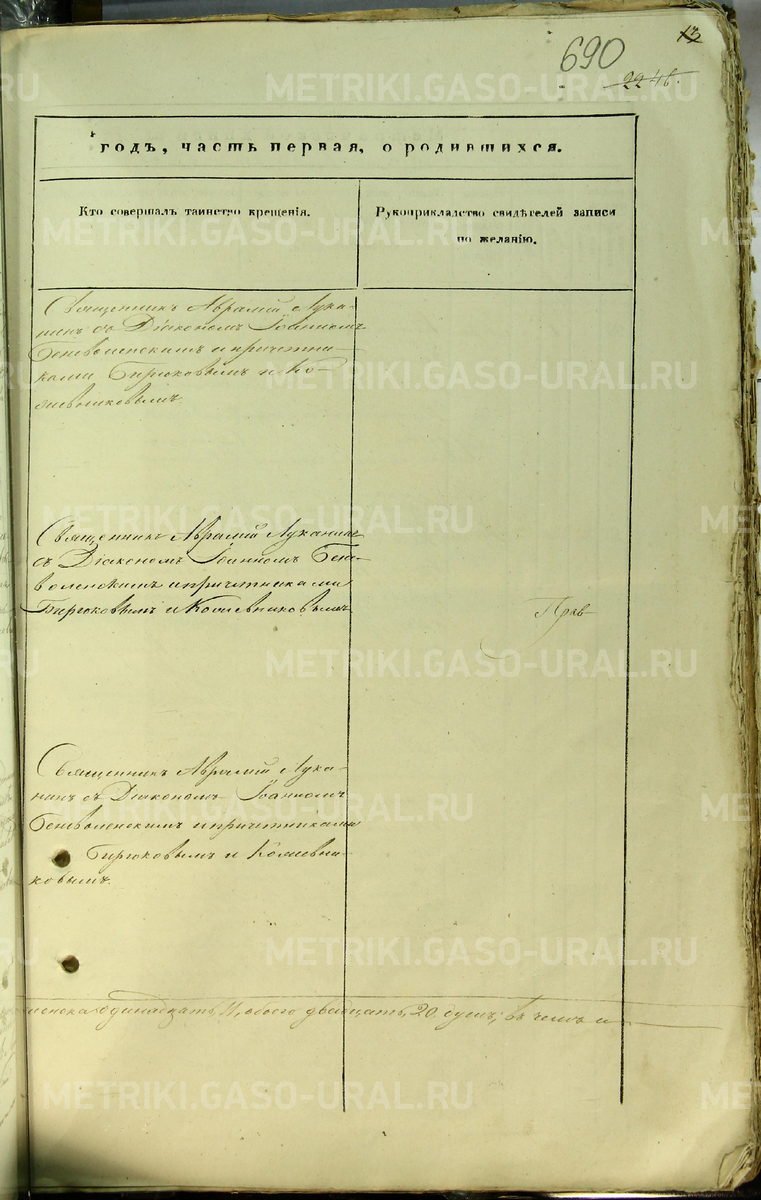 13
690
2246.
годъ, часть первая, о родившихся.
Кто совершалъ таинство крещенія.
Рукоприкладство свидѣтелей записи
по желанію.
Священникъ Аврамій Лука-
нинъ съ Діакономъ Іоанномъ
Беневоленскимъ и причетни-
ками Бирюковымъ и Ко-
жевниковымъ.
Священникъ Аврамій Луканинъ
съ Діакономъ Іоанномъ Бене-
воленскимъ и причетниками
Бирюковымъ и Кожевниковымъ
Прав-
Священникъ Аврамій Лука-
нинъ съ Діакономъ Іоанномъ
Беневоленскимъ и причетниками
Бирюковымъ и Кожевни-
ковымъ.
женска одинадцать, 11, обоего двадцать, 20. душъ; въ чемъ и
METRIKI.GASO-URAL.RU